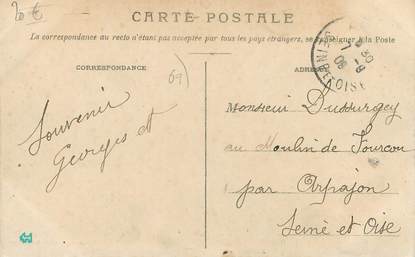 20 €
CARTE POSTALE
La correspondance au recto n'étant pas acceptée par tous les pays étrangers, se renseigner à la Poste
CORRESPONDANCE
ADRE
Souvenir
Georges et
Monsieur Dussurgey
au Moulin de Fourcon
par Arpajon
Seine et Oise